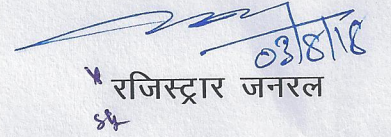 03/8/18
रजिस्ट्रार जनरल